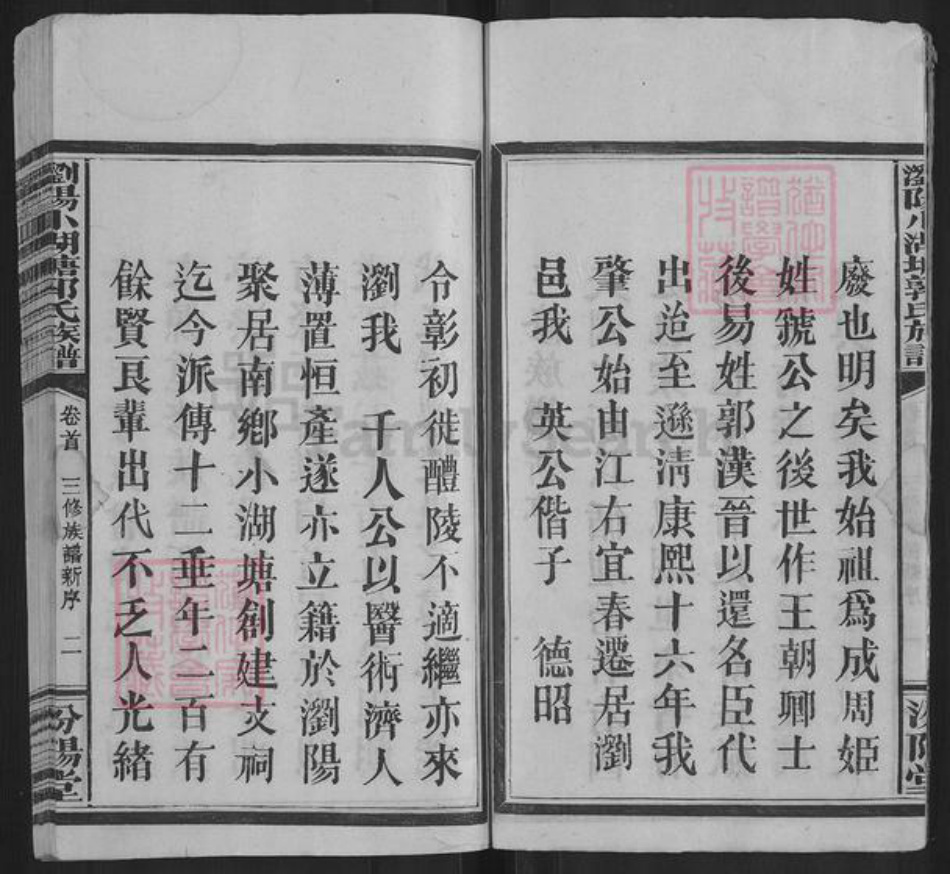 瀏陽小湖塘郭氏族譜
汾陽堂
廢也明矣我始祖爲成周姬
姓虢公之後世作王朝卿士
後易姓郭漢晉以還名臣代
出迨至遜淸康熙十六年我
肇公始由江右宜春遷居瀏
邑我 英公偕子 德昭
令彰初徙醴陵不適繼亦來
瀏我 千人公以醫術濟人
薄置恒產遂亦立籍於瀏陽
聚居南鄉小湖塘創建支祠
迄今派傳十二垂年二百有
餘賢良輩出代不乏人光緒
瀏陽小湖塘郭氏族譜
卷首
三修族譜新序
二
汾陽堂
FamilySearch